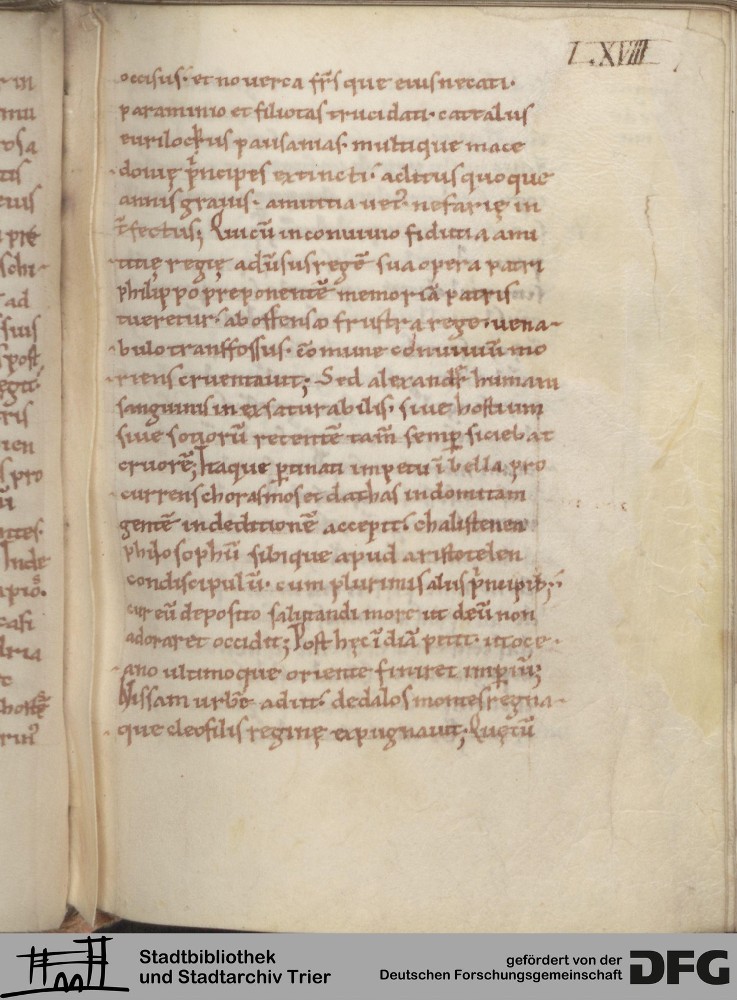 LXVIII
occisus· et nouerca fr̄s que eius necati·
paraminio et filiotas trucidati· cattalus
eurilochus pausanias· multique mace
donię prīncipes extincti· aclitus quoque
annis grauis· amicitia uet᷒· nefarię in
t̄fectus; Qui cū in conuiuio fiducia ami
citię regię aduersus regē sua opera patri
philippo preponentē memoriā patris
tueretur· ab offenso frustra rege· uena
bulo transfossus· cōmune conuiuiū mo
riens cruentauit; Sed alexandr̄ humani
sanguinis inexsaturabilis· siue hostium
siue sociorū recentē tam̄ semper siciebat
cruorē; Itaque ꝑtinati impetu ī bella pro
currens chorasmos et dathas indomitam
gentē in deditionē accepit· chalistenen
philosophū sibique apud aristotelen
condiscipulū· cum plurimis aliis prīncipib;·
cur eū deposito salutandi more ut deū non
adoraret occidit; Post hęc īdiā petit· ut oce
ano ultimoque oriente finiret imperiū;
Nissam urbē adiit· dedalos montes regna
que cleofilis reginę expugnauit; Quę cū
Stadtbibliothek
und Stadtarchiv Trier
gefördert von der
Deutschen Forschungsgemeinschaft
DFG